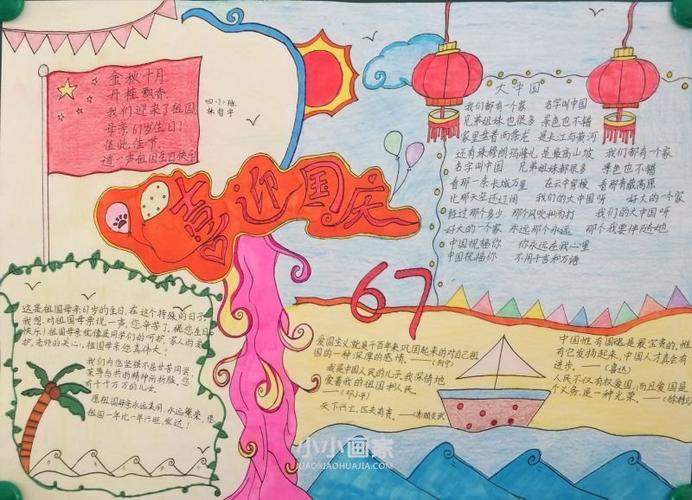 金秋十月
丹桂飘香
我们迎来了祖国
母亲67岁生日!
值此佳节,
道一声祖国生日快乐
四、小、班
喜迎国庆
大中国
我们都有一个家 名字叫中国
兄弟姐妹也很多 景色也不错
家里盘着两条龙 是长江与黄河
还有珠穆朗玛峰儿是最高山坡 我们都有一个家
名字叫中国 兄弟姐妹都很多 景色也不错
看那一条长城万里 在云中穿梭 看那青藏高原
比那天空还辽阔 我们的大中国呀 好大的一个家
经过那个多少 那个风吹和雨打 我们的大中国呀
好大的一个家 永远那个永远 那个我要伴随她
中国祝福你 你永远在我心里
中国祝福你 不用千言和万语
67
这是祖国母亲67岁的生日,在这个特殊的日子,
我想对祖国母亲说一声,您辛苦了,祝您生日
快乐!祖国母亲就像是同学们的呵护,家人的爱
护,老师的关心,祖国母亲您真伟大!
我们向您坚强不屈
荣辱与共的精神所折服,您
有十个万万的儿女。
愿祖国母亲永远美丽,永远繁荣,愿
祖国一年比一年兴旺,发达!
爱国主义就是千百年来巩固起来的对自己祖
国的一种深厚的感情。——(列宁)
我是中国人民的儿子,我深情地
爱着我的祖国和人民。
——(邓小平)
天下兴亡,匹夫有责。——(清)顾炎武
中国
有它发扬起来,中国人才真会有
进步。——(鲁迅)
人民不仅有权爱国,而且爱国是
个义务,是一种光荣。——(徐特立)
小小画家
XIAOXIAOHUAJIA.COM